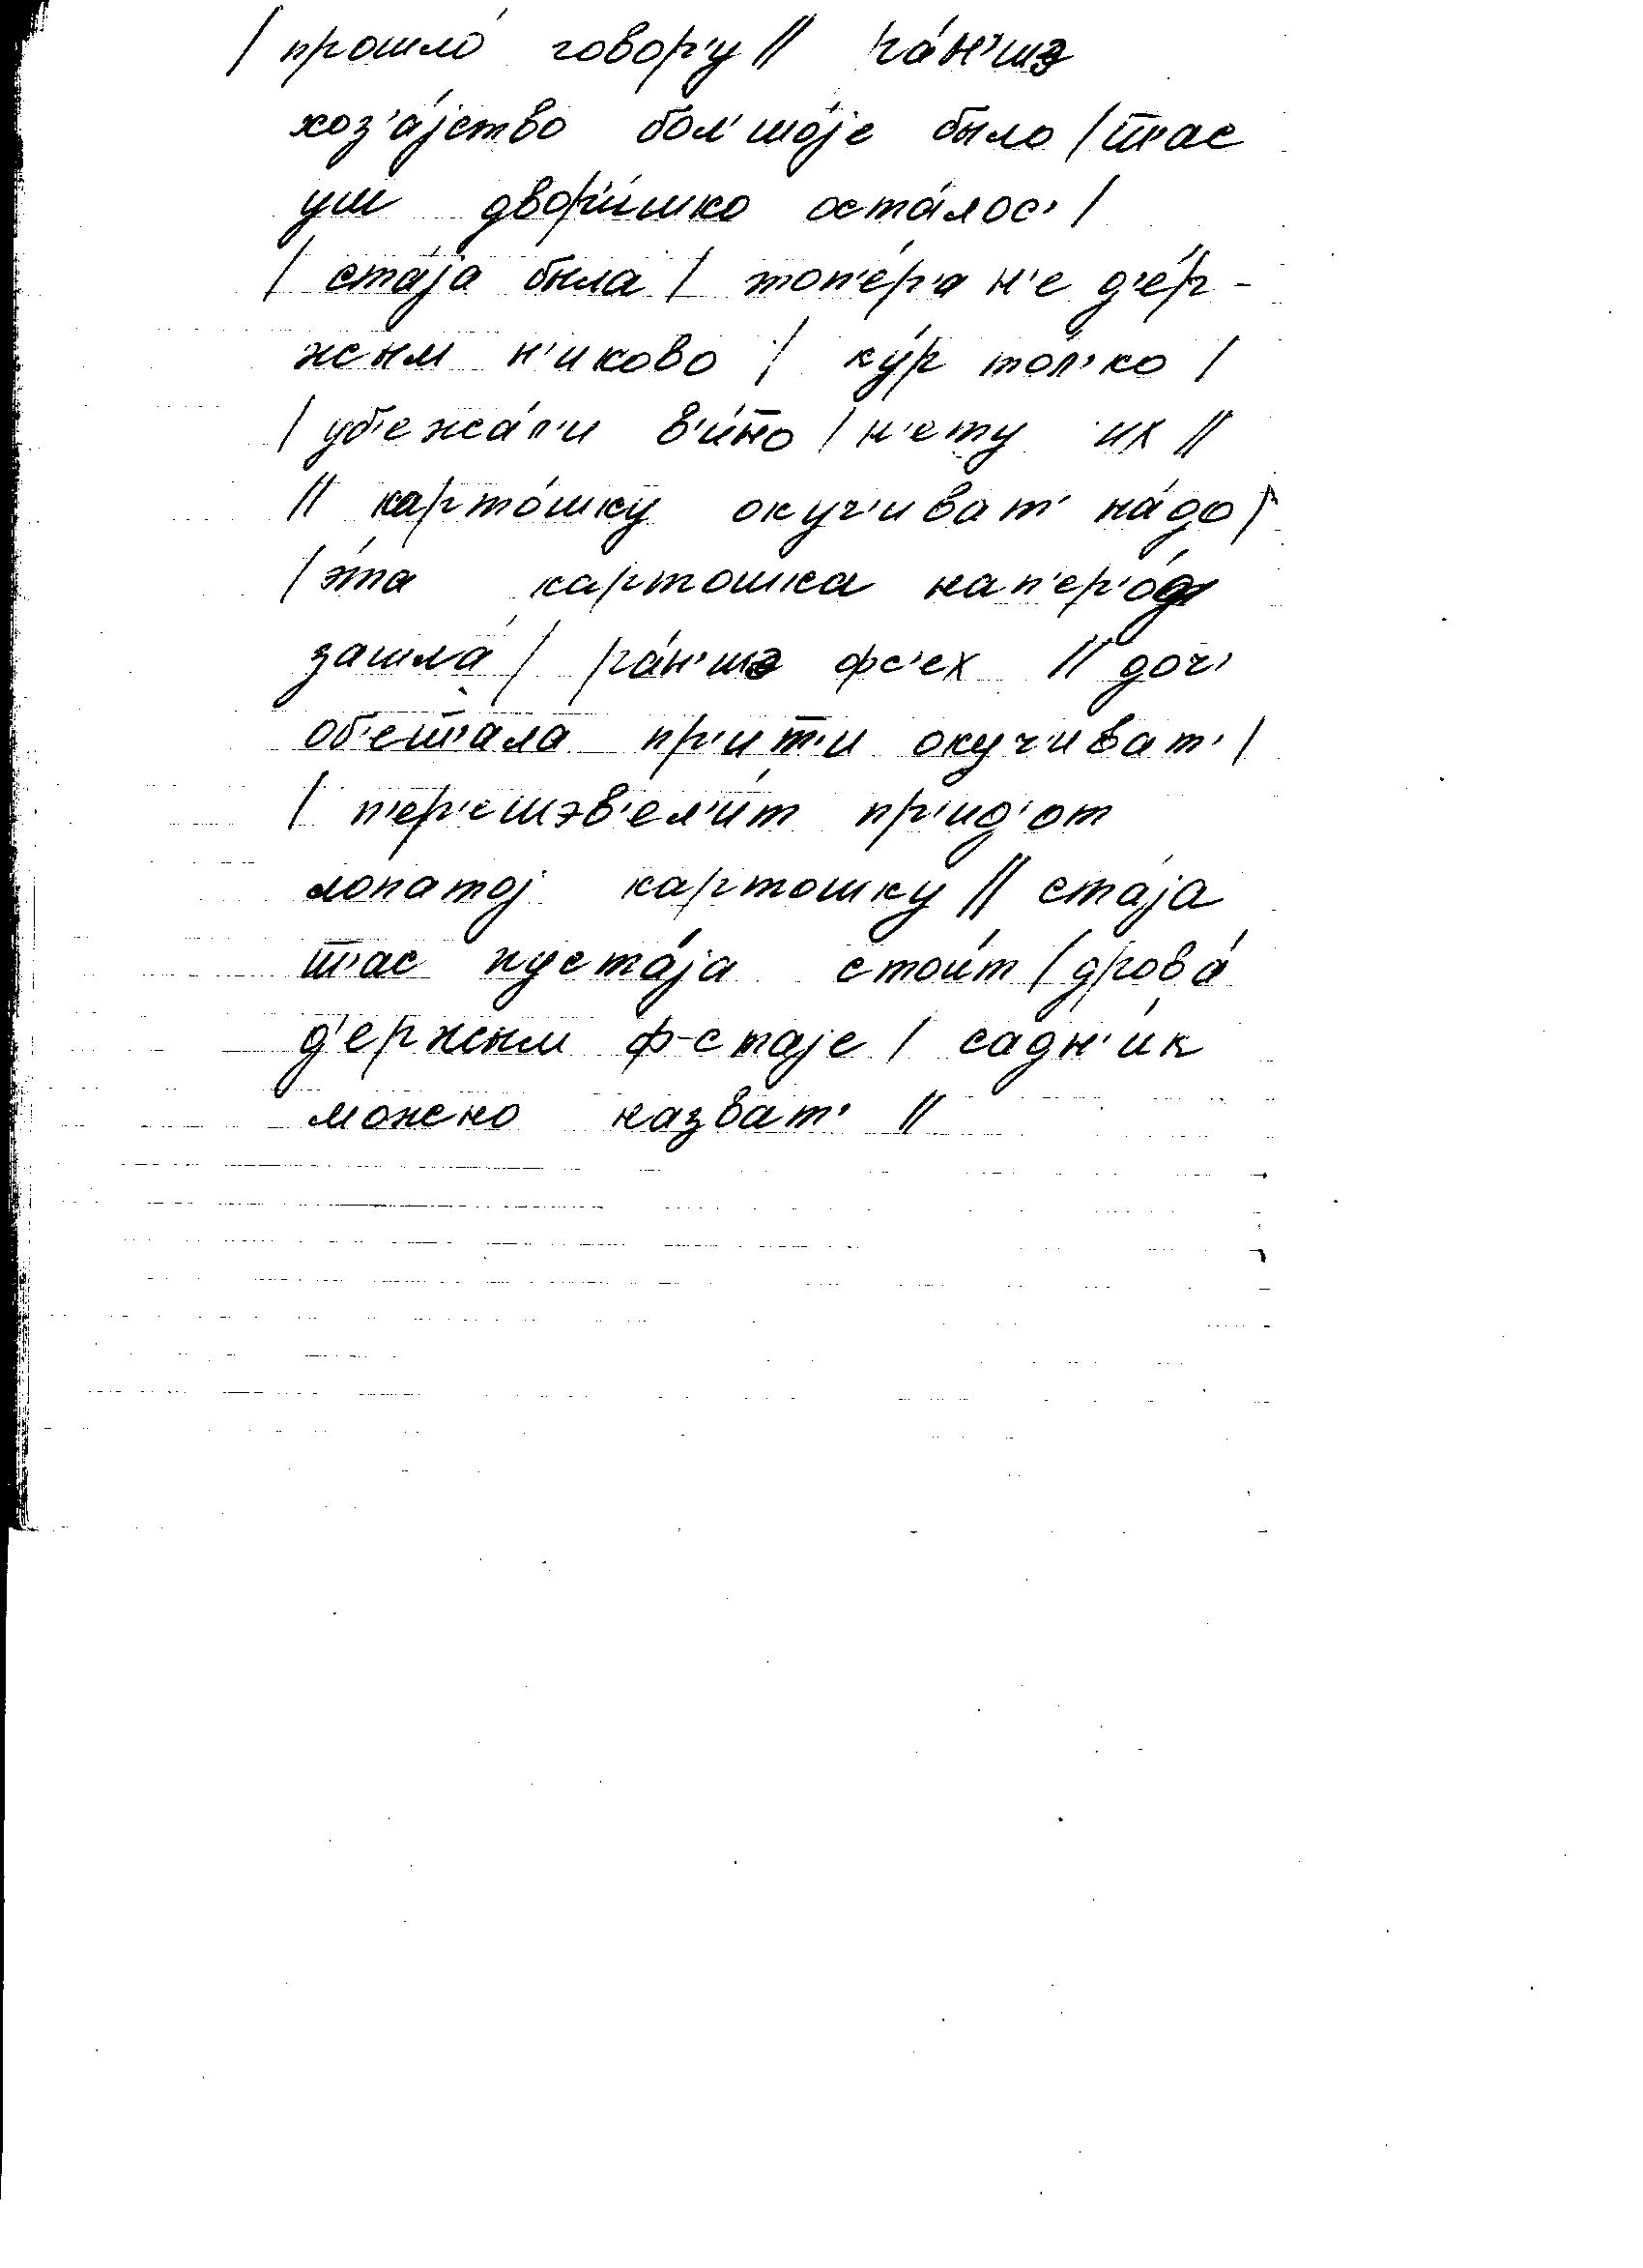 / прошло́ говор'у // ра́н'шэ
хоз'а́јство бол'шо́је было / ш̅'ас
уш двор'и́шко оста́лос' /
/ ста́ја была / топ'е́р'а н'е д'е́р-
жым н'иково / ку́р то́л'ко /
/ уб'ежа́л'и в'и́но / н'ету их //
// карто́шку окуч'иват' на́до /
/ э́та картошка нап'ер'о́д
зашла́ / ра́н'шэ фс'ех // доч'
об'еш̅'а́ла пр'ит̅'и окуч'иват' /
/ п'ер'ешэв'ел'и́т пр'ид'от
лопатој картошку // ста́ја
ш̅'ас пуста́ја стои́т / дрова́
д'ержым ф-стаје / садн'и́к
можно назват' //